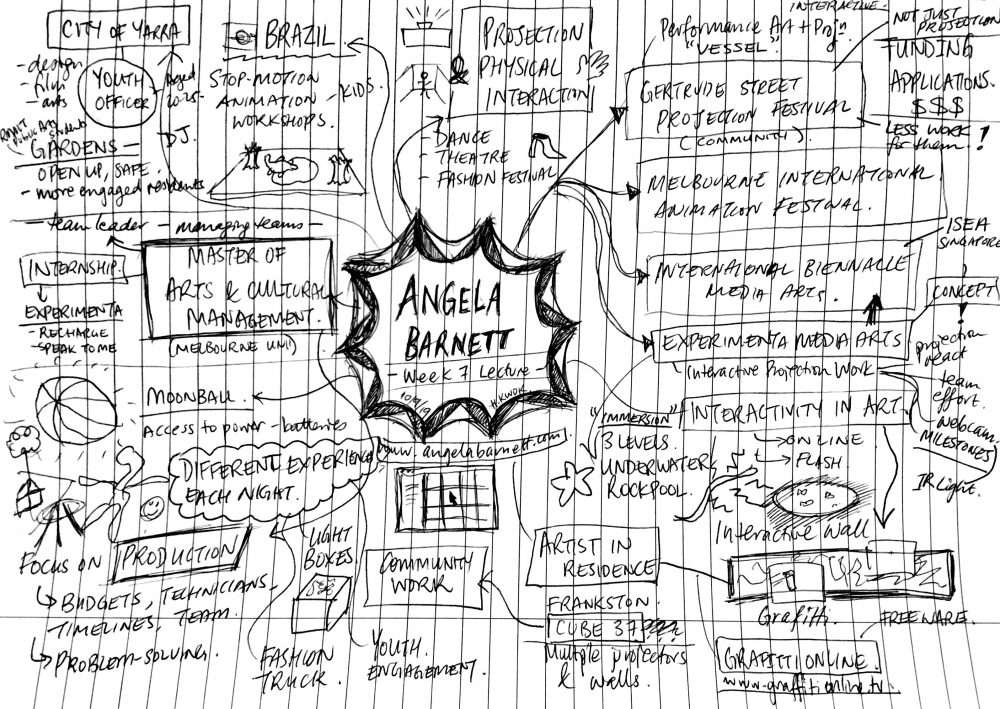 CITY OF YARRA
- design
- film
- arts
YOUTH
OFFICER
Aged
DJ.
GARDENS -
OPEN UP, SAFE.
- more engaged residents
BRAZIL
STOP-MOTION
ANIMATION - KIDS.
WORKSHOPS.
PROJECTION
PHYSICAL
INTERACTION
- DANCE
- THEATRE
- FASHION FESTIVAL
INTERACTIVE.
Performance Art + Projn
"VESSEL"
GERTRUDE STREET
PROJECTION FESTIVAL
(COMMUNITY)
NOT JUST
PROJECTION
FUNDING
APPLICATIONS.
$$$
LESS WORK
for them!
MELBOURNE INTERNATIONAL
ANIMATION FESTIVAL.
ISEA
SINGAPORE
INTERNATIONAL BIENNALLE
MEDIA ARTS.
EXPERIMENTA MEDIA ARTS
Interactive Projection Work
CONCEPT
projection
react
team
effort.
- webcam.
MILESTONES
IR light.
- team leader - managing teams -
MASTER OF
ARTS & CULTURAL
MANAGEMENT.
(MELBOURNE UNI)
INTERNSHIP.
EXPERIMENTA
- RECHARGE
- SPEAK TO ME
ANGELA
BARNETT
- Week 7 Lecture -
10/9/19
H.KWOK
www.angelabarnett.com
MOONBALL
Access to power - batteries
DIFFERENT EXPERIENCE
EACH NIGHT.
FOCUS ON PRODUCTION
BUDGETS, TECHNICIANS -
TIMELINES, TEAM.
PROBLEM-SOLVING.
LIGHT
BOXES
FASHION
TRUCK.
COMMUNITY
WORK
YOUTH
ENGAGEMENT.
"IMMERSION"
3 LEVELS.
UNDERWATER
ROCKPOOL.
INTERACTIVITY IN ART.
ONLINE
FLASH
Interactive Wall
Grafitti
FREEWARE.
ARTIST IN
RESIDENCE
FRANKSTON.
CUBE 37
Multiple projectors
& walls.
GRAFITTI ONLINE.
www.graffitionline.tv